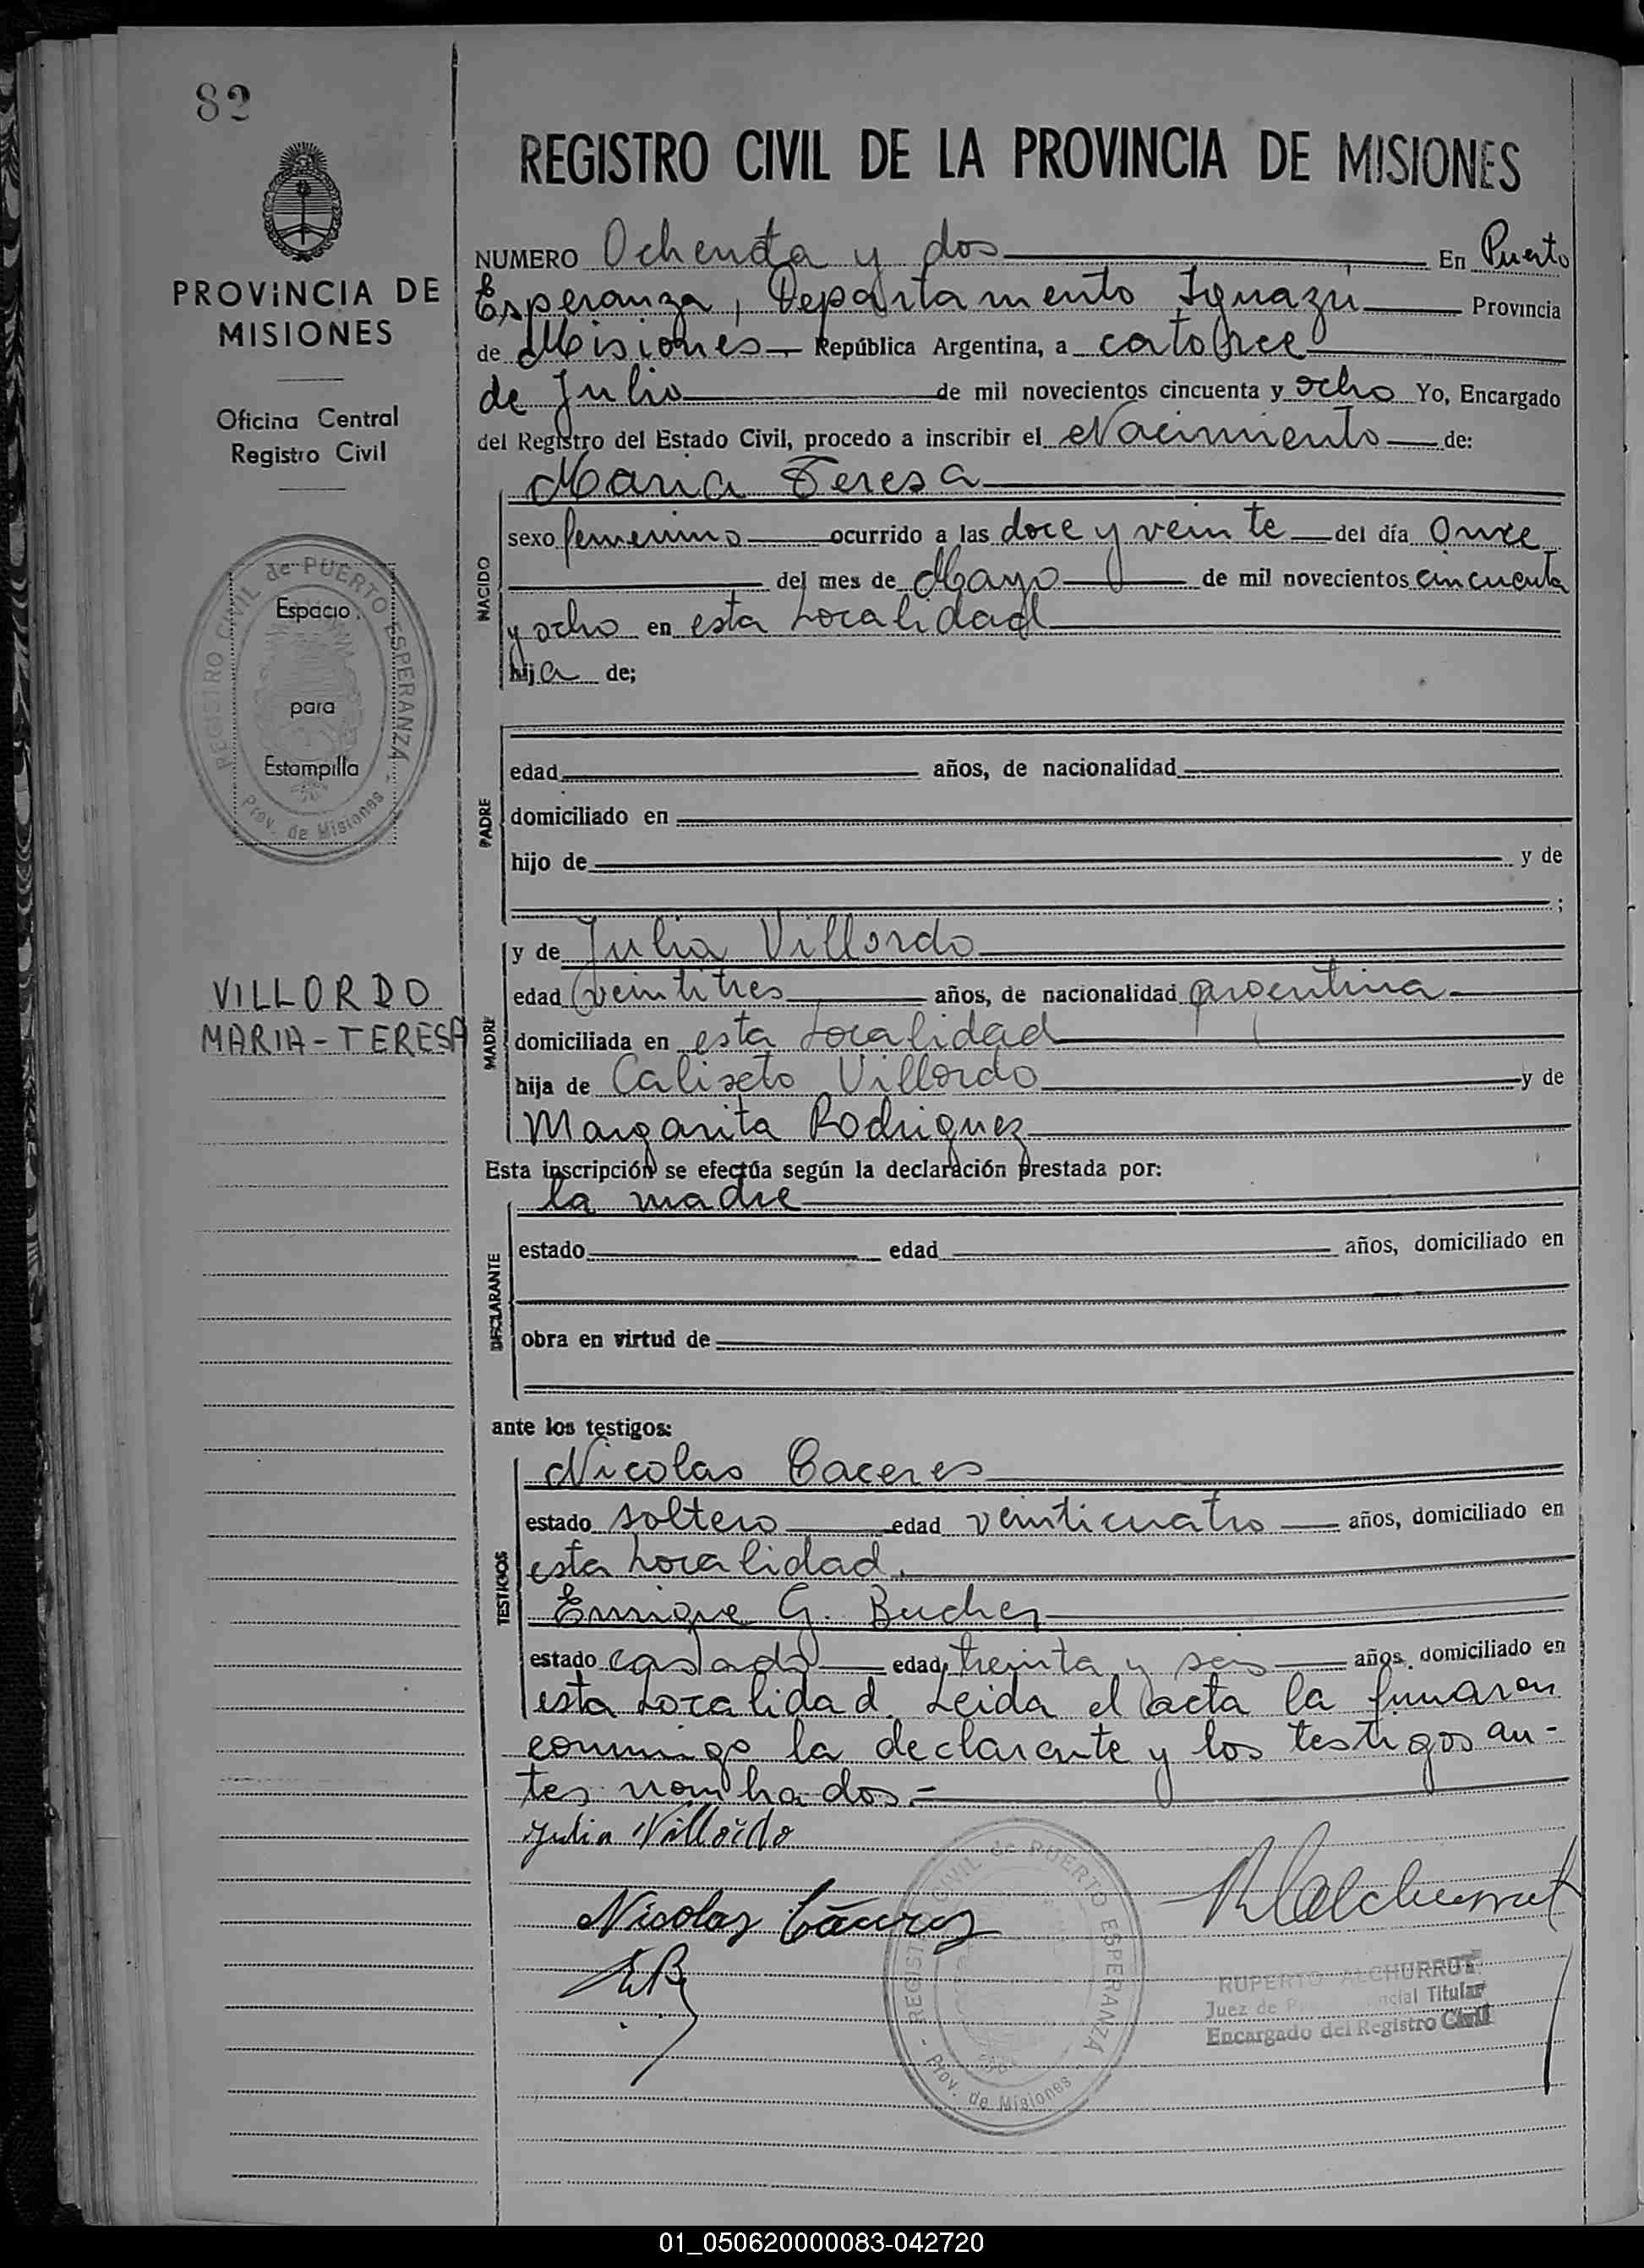 82
PROVINCIA DE
MISIONES
Oficina Central
Registro Civil
REGISTRO CIVIL de PUERTO ESPERANZA - Prov. de Misiones
Espacio
para
Estampilla
VILLORDO
MARIA-TERESA
REGISTRO CIVIL DE LA PROVINCIA DE MISIONES
NUMERO Ochenta y dos En Puerto
Esperanza, Departamento Iguazú Provincia
de Misiones República Argentina, a catorce
de Julio de mil novecientos cincuenta y ocho Yo, Encargado
del Registro del Estado Civil, procedo a inscribir el Nacimiento de:
NACIDO
Maria Teresa
sexo femenino ocurrido a las doce y veinte del día Once
del mes de Mayo de mil novecientos cincuenta
y ocho en esta Localidad
hija de;
PADRE
edad años, de nacionalidad
domiciliado en
hijo de y de
;
MADRE
y de Julia Villordo
edad veintitres años, de nacionalidad argentina
domiciliada en esta Localidad
hija de Caliseto Villordo y de
Margarita Rodriguez
Esta inscripción se efectúa según la declaración prestada por:
la madre
DECLARANTE
estado edad años, domiciliado en
obra en virtud de
ante los testigos:
TESTIGOS
Nicolas Caceres
estado soltero edad veinticuatro años, domiciliado en
esta Localidad.
Enrique G. Bucher
estado casado edad treinta y seis años, domiciliado en
esta Localidad. Leida el acta la firmaron
conmigo la declarante y los testigos an-
tes nombrados.=
Julia Villordo
Nicolas Cáceres
REGISTRO CIVIL de PUERTO ESPERANZA - Prov. de Misiones
RUPERTO ALCHURRUT
Juez de Titular
Encargado del Registro Civil
01_050620000083-042720